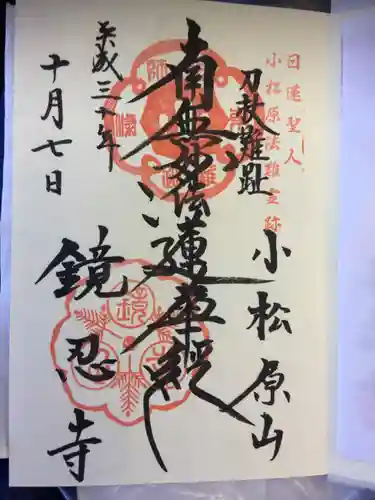 日蓮聖人
小松原法難霊跡
刀杖難趾
小松原山
南無妙法蓮華経
平成三十年
十月七日
鏡忍寺